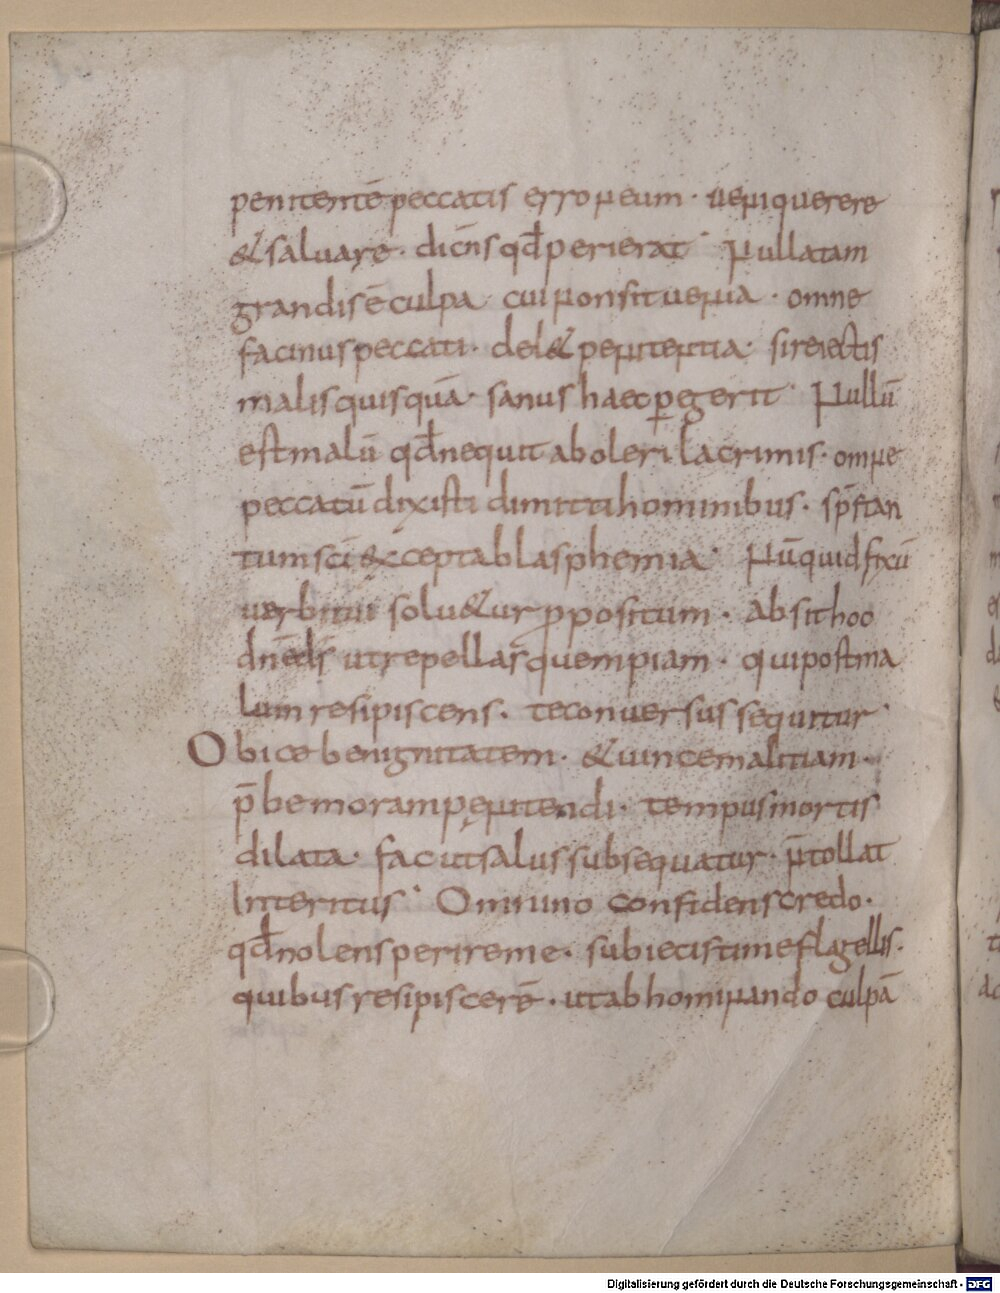 penitentē peccatis erroneum · ueni querere
& saluare · dicēns qđ perierat · Nullatam
grandis ē culpa cui non sit uenia · omne
facinus peccati · del& penitentia · si reiectis
malis quisquā · sanus haec pegerit · Nullū
est malū qđ nequit aboleri lacrimis · omne
peccatū dixisti dimitti hominibus · sp̄s tan
tum sc̄i excepta blasphemia · Nūquid fixū
uerbi tui solu&ur ppositum · Absit hoc
dn̄e ds̄ ut repellas quempiam · qui post ma
lum resipiscens · te conuersus sequitur ·
Obice benignitatem · & uince malitiam ·
p̄be moram pęnitendi · tempus mortis
dilata · fac ut salus subsequatur · n̄ tollat
Interitus · Omnino confidens credo ·
qđ nolens perire me · subiecisti me flagellis ·
quibus resipiscerē · ut abhominando culpā
Digitalisierung gefördert durch die Deutsche Forschungsgemeinschaft - DFG